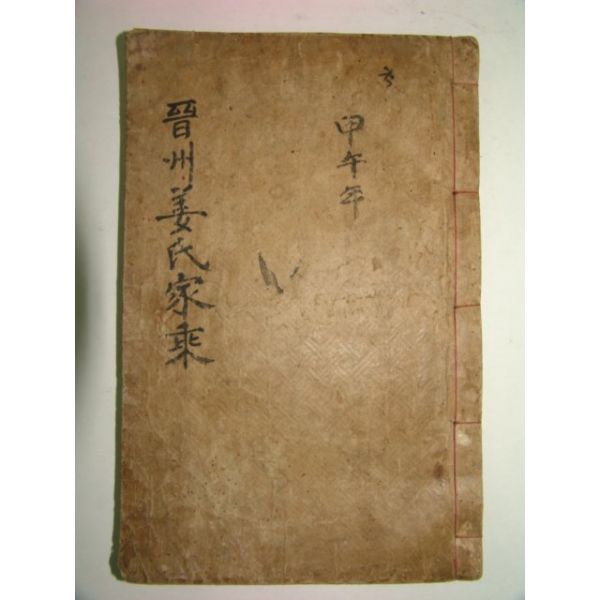 甲午年
晋州姜氏家乗